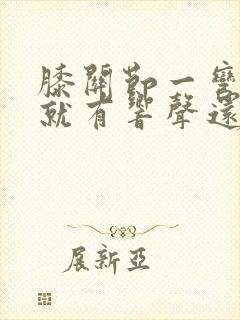 膝關節一彎
就有響聲還
展新亞